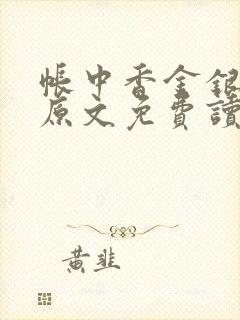 帳中香金銀
原文免費讀
黃韭